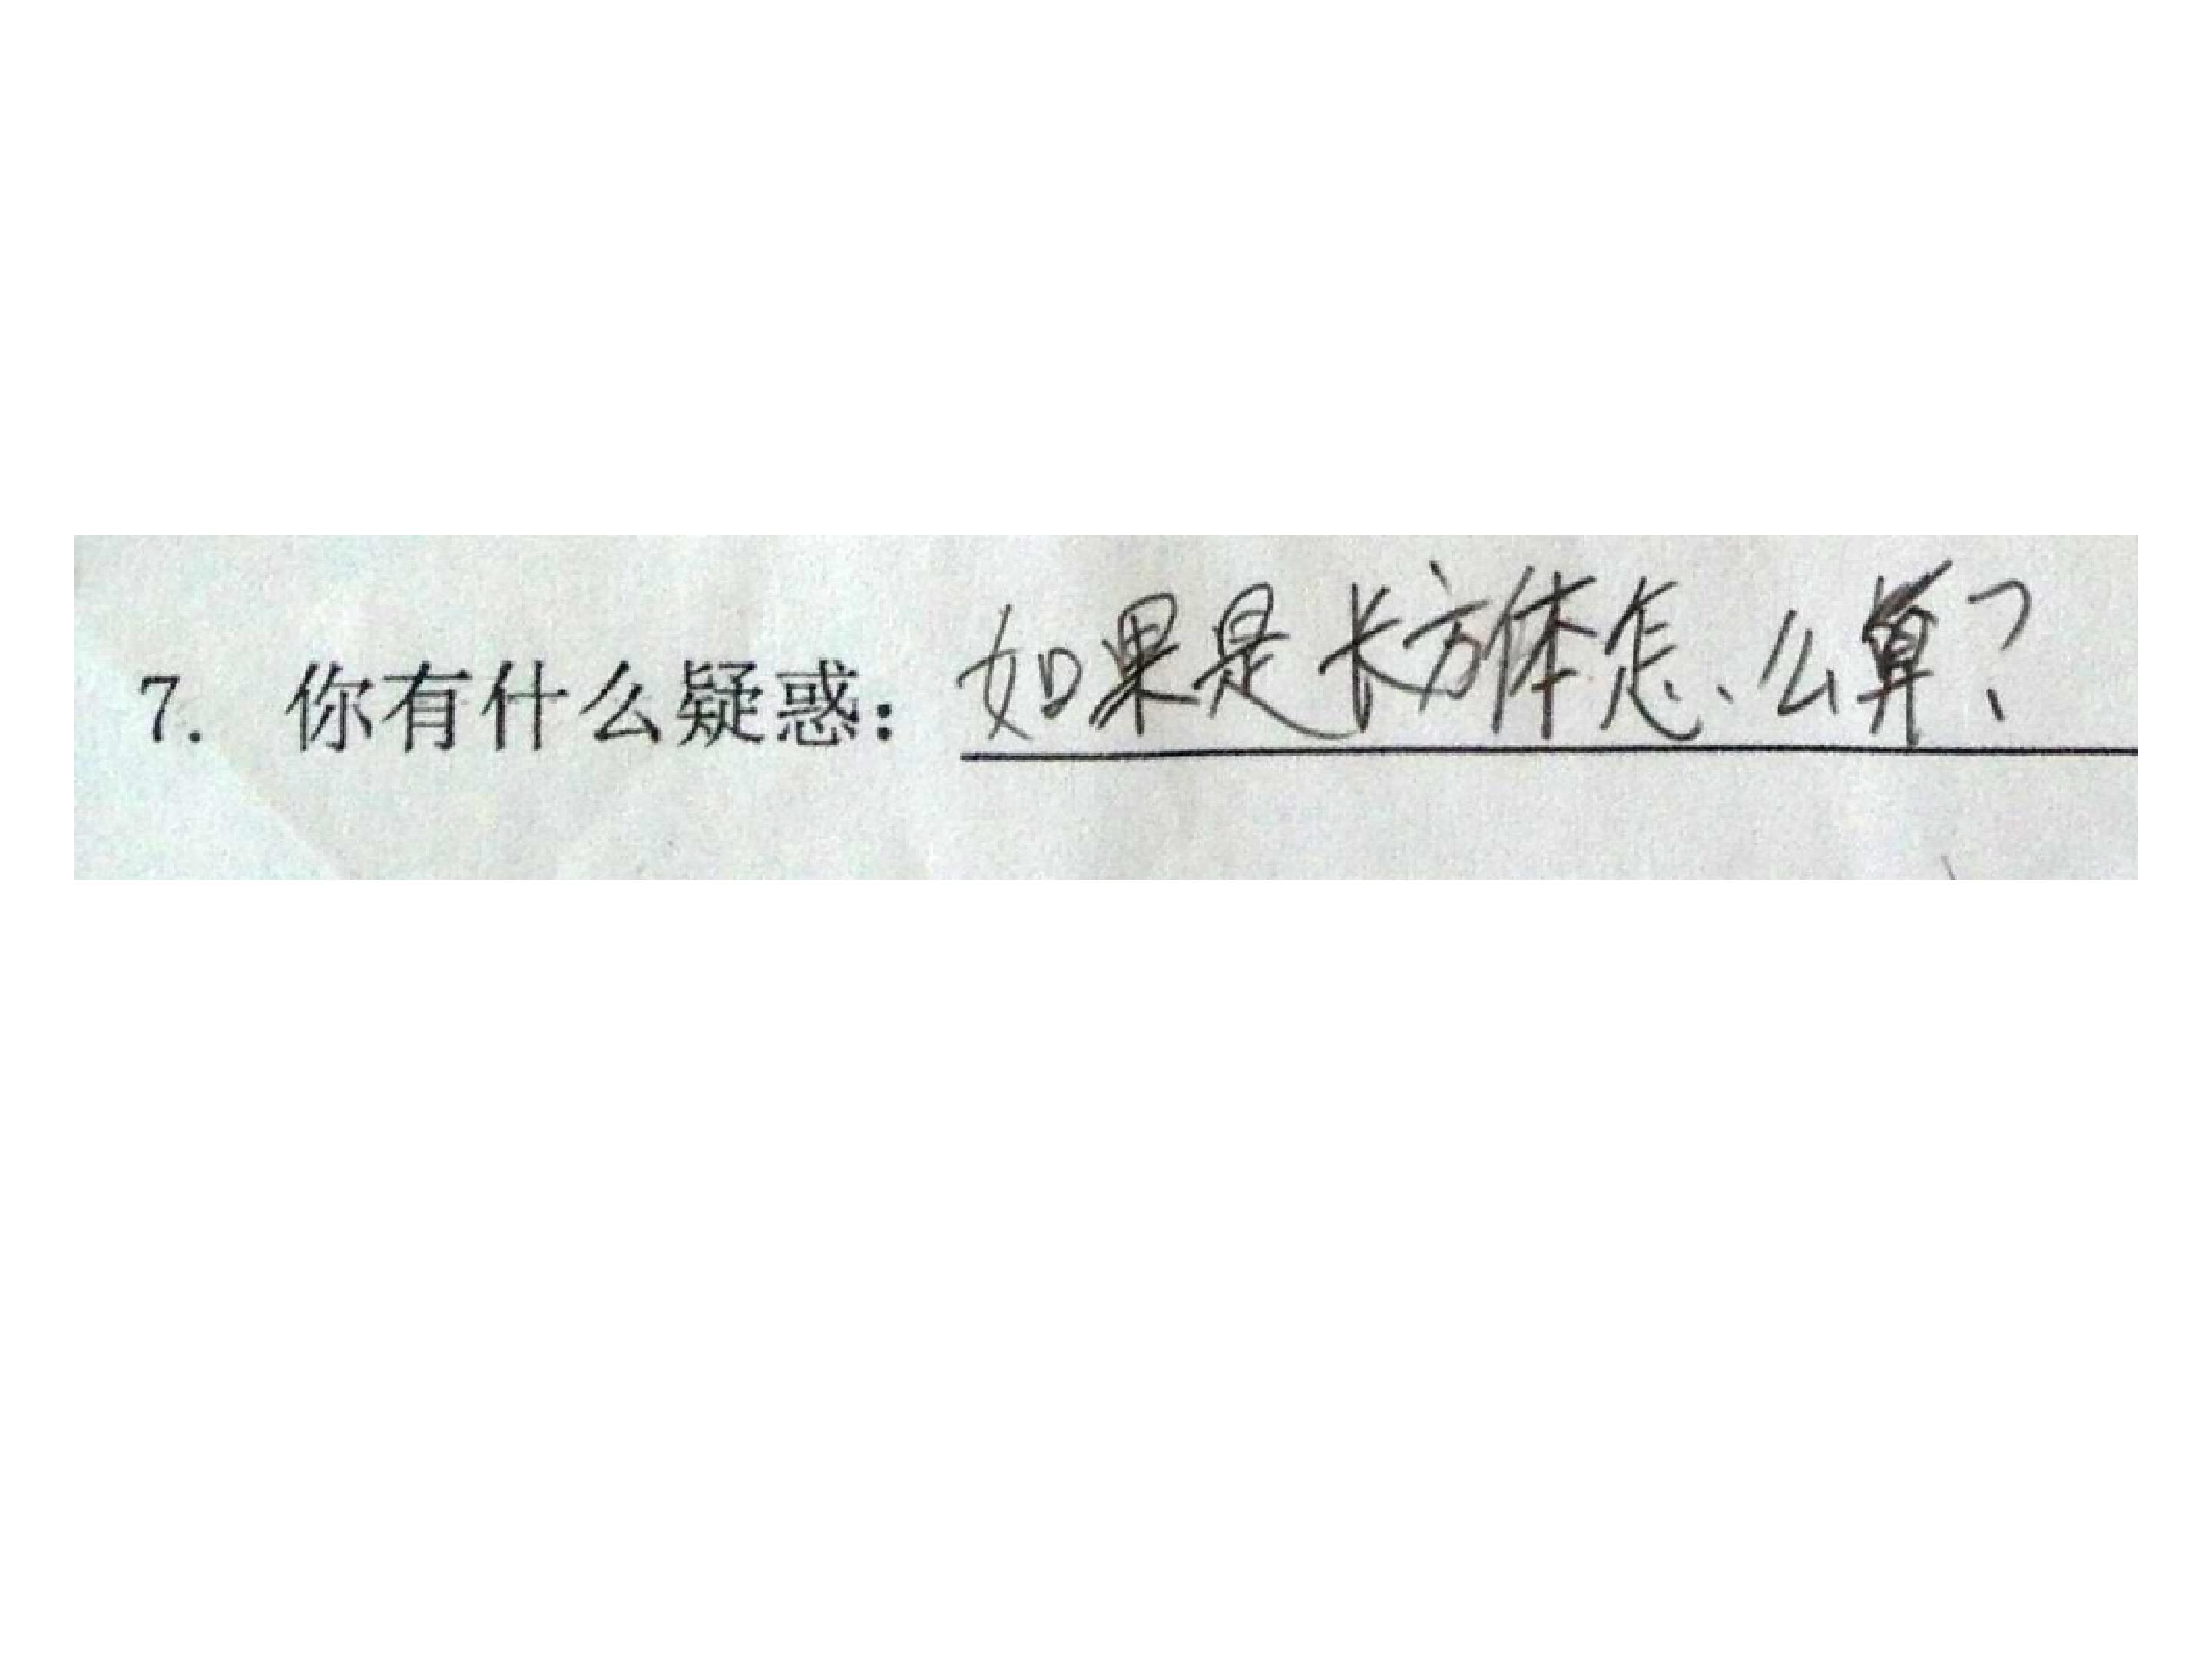 7. 你有什么疑惑：如果是长方体怎么算？